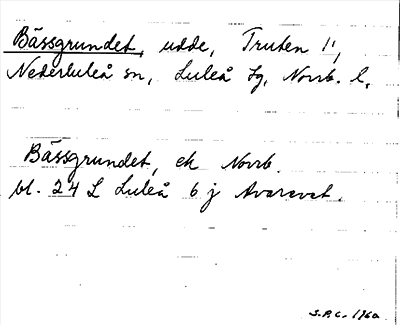 Bässgrundet, udde, Truten 1¹,
Nederluleå sn, Luleå tg, Norrb. l.
Bässgrundet, ek Norrb.
bl. 24 L Luleå 6 j Avarevet.
S.P.C. 1960